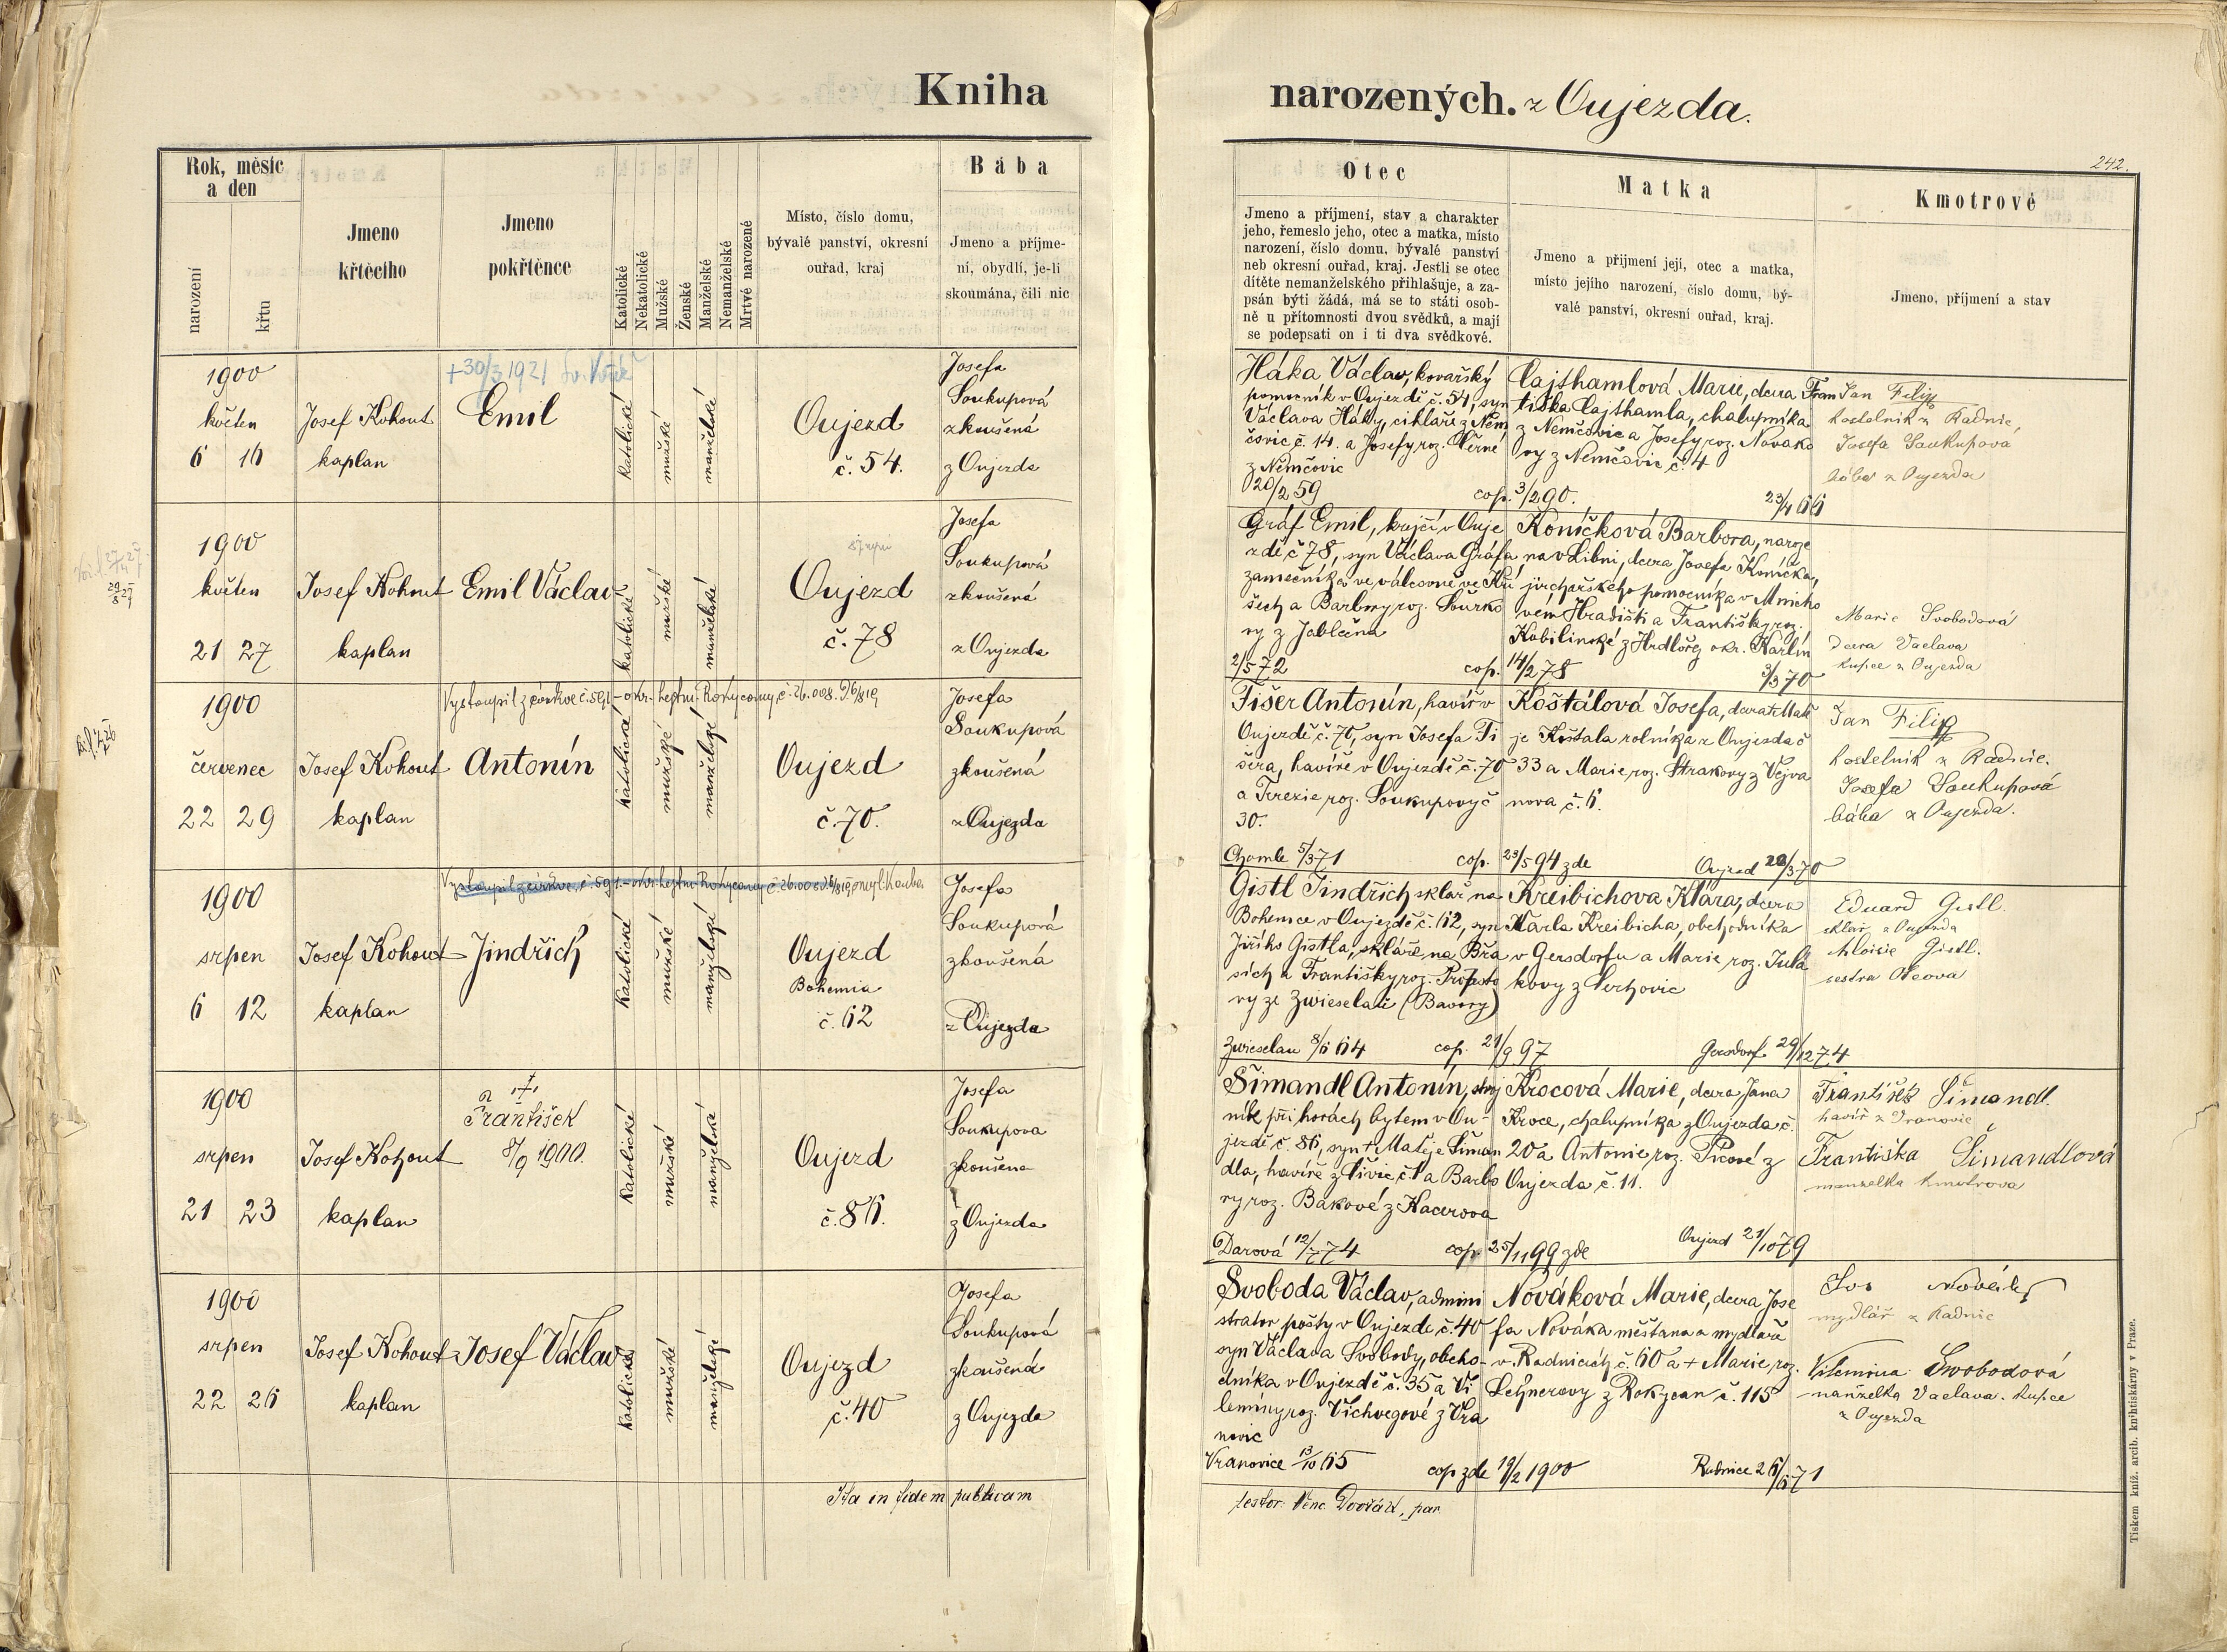 Kniha
Rok, měsíc
a den
narození
křtu
Jmeno
křtěcího
Jmeno
pokřtěnce
Katolické
Nekatolické
Mužské
Ženské
Manželské
Nemanželské
Mrtvě narozené
Místo, číslo domu,
bývalé panství, okresní
ouřad, kraj
Bába
Jmeno a příjme-
ní, obydlí, je-li
skoumána, čili nic
+30/3 1921
1900
květen
6 16
Josef Kohout
kaplan
Emil
katolické
mužské
manželské
Oujezd
č. 54.
Josefa
Soukupová
zkoušená
z Oujezda
1900
květen
21 27
Josef Kohout
kaplan
Emil Václav
katolické
mužské
manželské
Oujezd
č. 78
Josefa
Soukupová
zkoušená
z Oujezda
Vystoupil z církve č. 591 - okr. hejtm. Rokycany č. 26.008.
1900
červenec
22 29
Josef Kohout
kaplan
Antonín
katolické
mužské
manželské
Oujezd
č. 70.
Josefa
Soukupová
zkoušená
z Oujezda
1900
srpen
6 12
Josef Kohout
kaplan
Jindřich
katolické
mužské
manželské
Oujezd
Bohemia
č. 62
Josefa
Soukupová
zkoušená
z Oujezda
1900
srpen
21 23
Josef Kohout
kaplan
†
František
8/9 1900.
katolické
mužské
manželské
Oujezd
č. 86.
Josefa
Soukupova
zkoušena
z Oujezda
1900
srpen
22 26
Josef Kohout
kaplan
Josef Václav
katolické
mužské
manželské
Oujezd
č. 40
Josefa
Soukupová
zkoušená
z Oujezda
Ita in fidem publicam
narozených. z Oujezda.
242.
Otec
Jmeno a příjmení, stav a charakter
jeho, řemeslo jeho, otec a matka, místo
narození, číslo domu, bývalé panství
neb okresní ouřad, kraj. Jestli se otec
dítěte nemanželského přihlašuje, a za-
psán býti žádá, má se to státi osob-
ně u přítomnosti dvou svědků, a mají
se podepsati on i ti dva svědkové.
Matka
Jmeno a přijmení její, otec a matka,
místo jejího narození, číslo domu, bý-
valé panství, okresní ouřad, kraj.
Kmotrové
Jmeno, příjmení a stav
Háka Václav, kovářský
pomocník v Oujezdě č. 54, syn
Václava Háky, cihláře z Něm
čovic č. 14. a Josefy roz. Černé
z Němčovic
20/2 59
cop. 3/2 90.
Cajthamlová Marie, dcera Fran
tiška Cajthamla, chalupníka
z Němčovic a Josefy roz. Novako
vy z Němčovic č. 4
23/4 66
Jan Filip
kostelník z Radnic,
Josefa Soukupova
bába z Oujezda
Gráf Emil, krejčí v Ouje
zdě č 78, syn Václava Gráfa
zámečníka ve válcovně ve Hrá
šech a Barbory roz. Šourko
vy z Jablečna
2/5 72
cop. 14/2 78
Koníčková Barbora, naroze
na v Libni, dcera Josefa Koníčka,
jirchářského pomocníka v Mnicho
vém Hradišti a Františky roz.
Kobilinské z Hrdlořez okr. Karlín
3/3 70
Marie Svobodová
dcera Václava
kupce z Oujezda
Fišer Antonín, havíř v
Oujezdě č. 70, syn Josefa Fi
šera, havíře v Oujezdě č. 70
a Terezie roz. Soukupovy č
30.
Chomle 5/3 71
cop. 23/5 94 zde
Koštálová Josefa, dcera Matě
je Koštala rolníka z Oujezda č
33 a Marie roz. Strakovy z Vejva
nova č. 6.
Oujezd 20/3 70
Jan Filip
kostelník z Radnic.
Josefa Soukupová
bába z Oujezda.
Gistl Jindřich sklář na
Bohemce v Oujezdě č. 62, syn
Jiřího Gistla, skláře na Břa
sích a Františky roz.
vy ze Zwieselau (Bavory)
Zwieselau 8/6 64
cop. 21/9 97
Kreibichova Klára, dcera
Karla Kreibicha, obchodníka
v Gersdorfu a Marie roz. Julá
kovy z
Gersdorf 29/12 74
Eduard Gistl.
sklář z Oujezda
Aloisie Gistl.
sestra Otcova
Šimandl Antonín, stroj
ník při horách bytem v Ou-
jezdě č. 86, syn + Matěje Šiman
dla, havíře z Livic č. 1 a Barbo
ry roz. Bakové z Kacerova
Darová 12/7 74
cop. 25/11 99 zde
Krocová Marie, dcera Jana
Kroce, chalupníka z Oujezda č.
20 a Antonie roz. Picové z
Oujezda č. 11.
Oujezd 21/10 79
František Šimandl.
havíř z Vranovic
Františka Šimandlová
manželka kmotrova
Svoboda Václav, admini
strator pošty v Oujezdě č. 40
syn Václava Svobody, obcho-
dníka v Oujezdě č. 35 a Vi
lemíny roz. Vichvegové z Vra
novic
Vranovice 13/10 65
cop zde 19/2 1900
Nováková Marie, dcera Jose
fa Nováka měšťana a mydláře
v Radnicích č. 60 a + Marie roz.
Lehnerovy z Rokycan č. 115
Radnice 26/6 71
Jos Novák
mydlář z Radnic
Vilemina Swobodová
manželka Vaclava. kupce
z Oujezda
testor Venc. Dvořák, par.
Tiskem kníž. arcib. knihtiskárny v Praze.